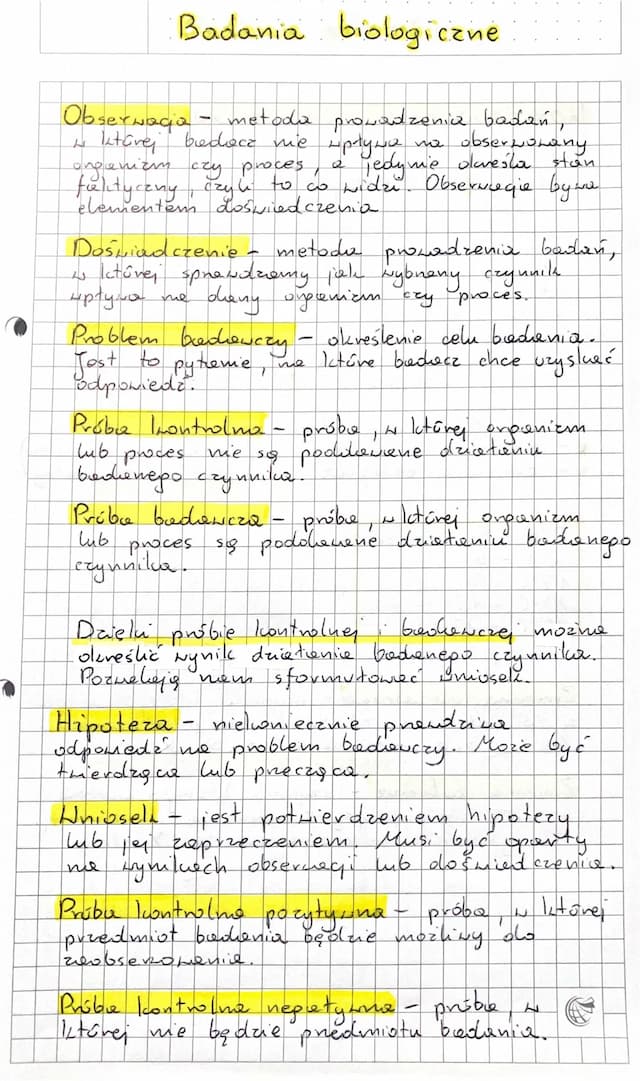 Badania biologiczne
Obserwacja – metoda prowadzenia badań,
w której badacz nie wpływa na obserwowany
organizm czy proces, a jedynie określa stan
faktyczny, czyli to co widzi. Obserwacja bywa
elementem doświadczenia
Doświadczenie – metoda prowadzenia badań,
w której sprawdzamy jak wybrany czynnik
wpływa na dany organizm czy proces.
Problem badawczy – określenie celu badania.
Jest to pytanie, na które badacz chce uzyskać
odpowiedź.
Próba kontrolna – próba, w której organizm
lub proces nie są poddawane działaniu
badanego czynnika.
Próba badawcza – próba, w której organizm
lub proces są poddawane działaniu badanego
czynnika.
Dzięki próbie kontrolnej i badawczej można
określić wynik działania badanego czynnika.
Pozwalają nam sformułować wniosek.
Hipoteza – niekoniecznie prawdziwa
odpowiedź na problem badawczy. Może być
twierdząca lub przecząca.
Wniosek – jest potwierdzeniem hipotezy
lub jej zaprzeczeniem. Musi być oparty
na wynikach obserwacji lub doświadczenia.
Próba kontrolna pozytywna – próba, w której
przedmiot badania będzie możliwy do
zaobserwowania.
Próba kontrolna negatywna – próba, w
której nie będzie przedmiotu badania.